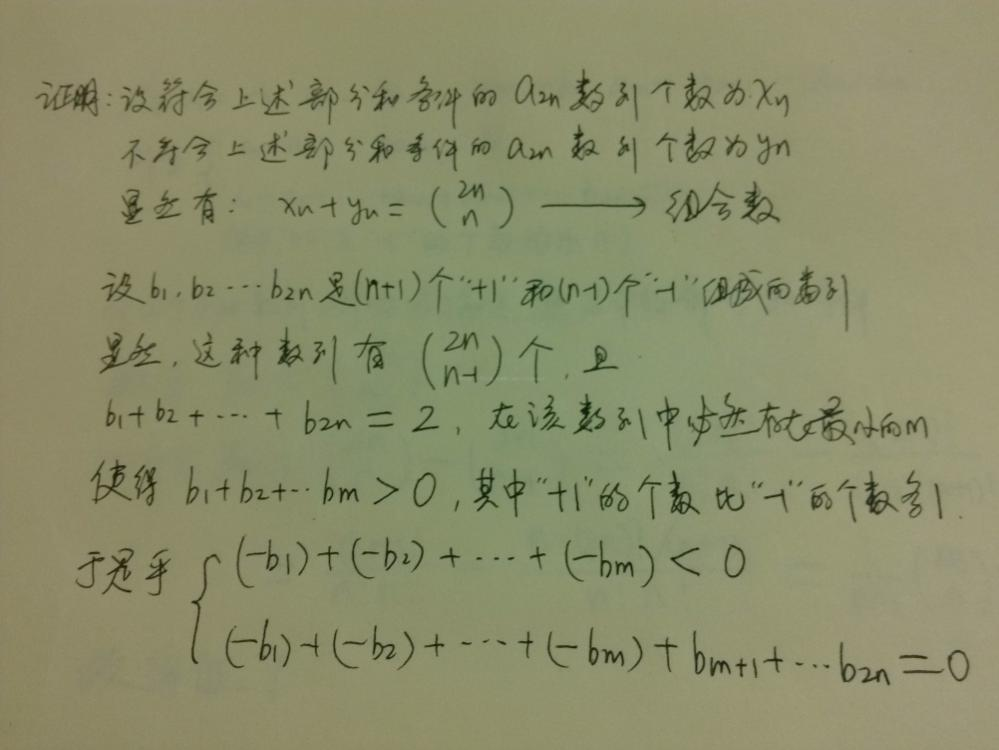 证明：设符合上述部分和条件的 a2n 数列个数为 xn
不符合上述部分和条件的 a2n 数列个数为 yn
显然有： xn + yn = (2n n) ⟶ 组合数
设 b1, b2 ⋯ b2n 是(n+1)个“+1”和(n-1)个“-1”组成的数列
显然，这种数列有 (2n n-1) 个，且
b1 + b2 + ⋯ + b2n = 2，在该数列中必然存在最小的m
使得 b1+b2+⋯bm > 0，其中“+1”的个数比“-1”的个数多1.
于是乎 { (-b1)+(-b2)+⋯+(-bm) < 0
(-b1)+(-b2)+⋯+(-bm)+bm+1+⋯b2n = 0